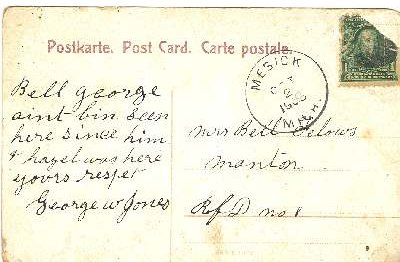 Postkarte. Post Card. Carte postale.
MESICK
MICH.
Bell george
aint bin seen
here since him
& hazel was here
yours respet
George W Jones
Mrs Bell
manton
R f D no 1